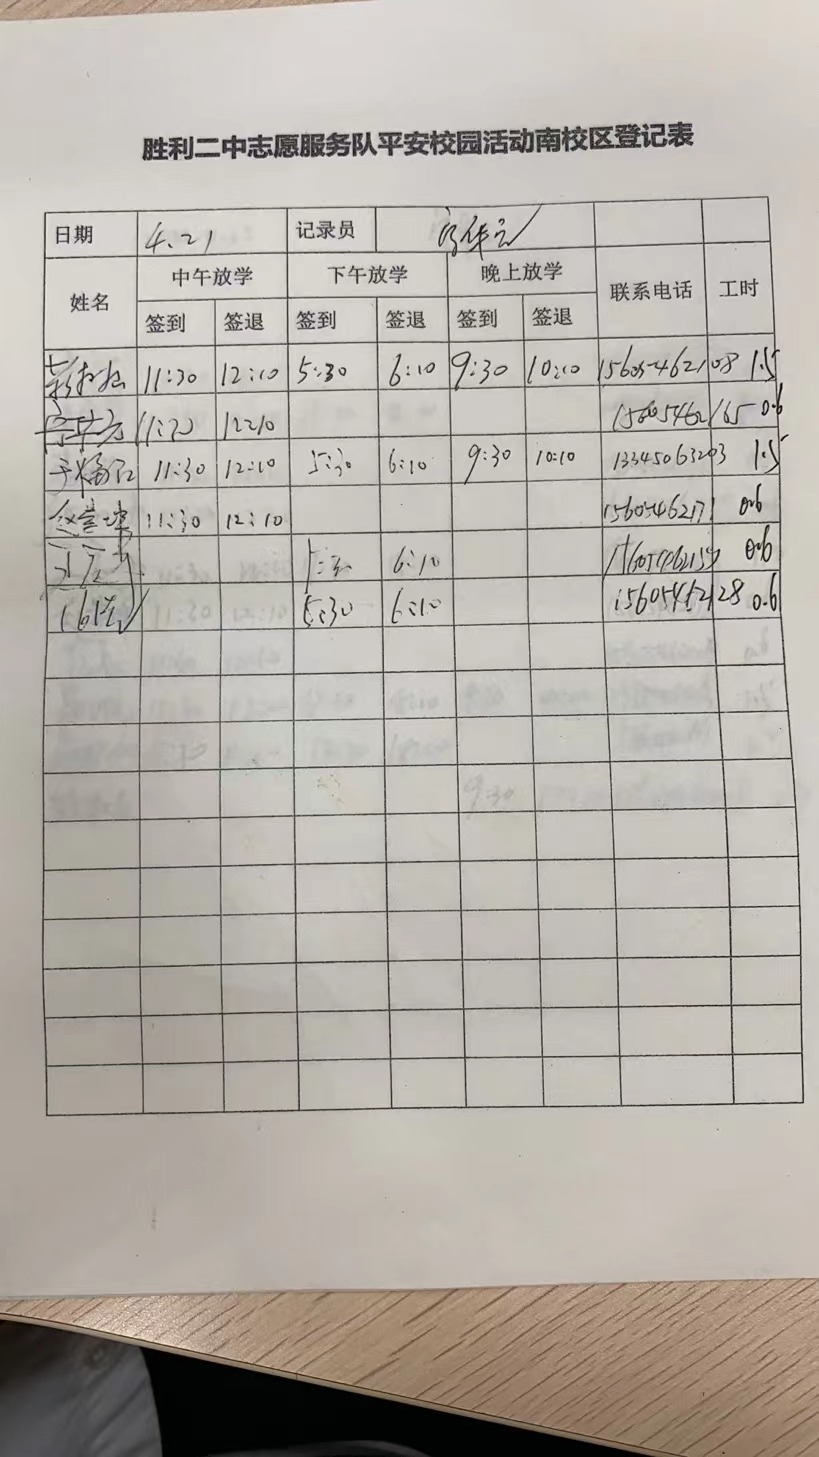 胜利二中志愿服务队平安校园活动南校区登记表
日期 4.21 记录员
姓名 中午放学 下午放学 晚上放学 联系电话 工时
签到 签退 签到 签退 签到 签退
11:30 12:10 5:30 6:10 9:30 10:10 15605462108 1.5
12:10 15605462165 0.6
11:30 12:10 5:30 6:10 9:30 10:10 13345063203 1.5
11:30 12:10 15605462171 0.6
6:10 0.6
5:30 6:10 15605462128 0.6